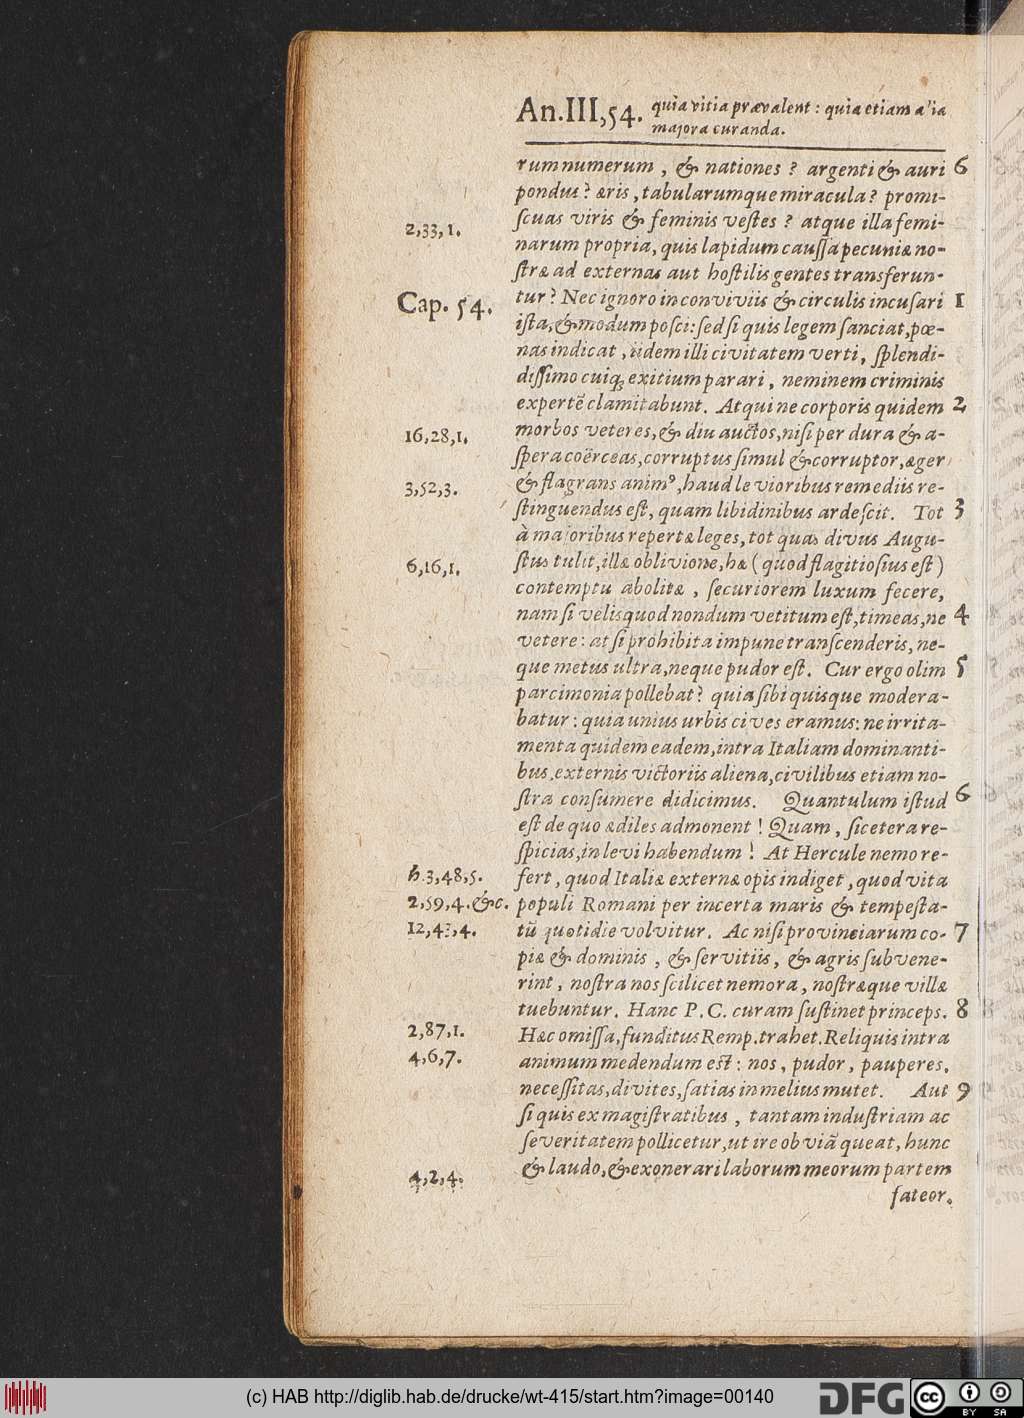 An.III,54. quia vitia prævalent : quia etiam alia
majora curanda.
rum numerum, & nationes? argenti & auri 6
pondus? æris, tabularumque miracula? promi-
2,33,1. ſcuas viris & feminis veſtes? atque illa femi-
narum propria, quis lapidum cauſſa pecuniæ no-
ſtræ ad externas aut hoſtilis gentes transferun-
Cap. 54. tur? Nec ignoro in conviviis & circulis incuſari 1
iſta, & modum poſci: ſed ſi quis legem ſanciat, pœ-
nas indicat, iidem illi civitatem verti, ſplendi-
diſſimo cuiq; exitium parari, neminem criminis
expertē clamitabunt. Atqui ne corporis quidem 2
16,28,1. morbos veteres, & diu auctos, niſi per dura & a-
ſpera coërceas, corruptus ſimul & corruptor, æger
3,52,3. & flagrans animꝰ, haud levioribus remediis re-
ſtinguendus eſt, quam libidinibus ardeſcit. Tot 3
à majoribus repertæ leges, tot quas divus Augu-
6,16,1. ſtus tulit, illæ oblivione, hæ (quod flagitioſius eſt)
contemptu abolitæ, ſecuriorem luxum fecere,
nam ſi velis quod nondum vetitum eſt, timeas, ne 4
vetere: at ſi prohibita impune tranſcenderis, ne-
que metus ultra, neque pudor eſt. Cur ergo olim 5
parcimonia pollebat? quia ſibi quisque modera-
batur: quia unius urbis cives eramus: ne irrita-
menta quidem eadem, intra Italiam dominanti-
bus. externis victoriis aliena, civilibus etiam no-
ſtra conſumere didicimus. Quantulum iſtud 6
eſt de quo ædiles admonent! Quam, ſi cetera re-
ſpicias, in levi habendum! At Hercule nemo re-
h.3,48,5. fert, quod Italia externæ opis indiget, quod vita
2,59,4.&c. populi Romani per incerta maris & tempeſta-
12,43,4. tū quotidie volvitur. Ac niſi provinciarum co- 7
piæ & dominis, & ſervitiis, & agris ſubvene-
rint, noſtra nos ſcilicet nemora, noſtræque villæ
tuebuntur. Hanc P.C. curam ſuſtinet princeps. 8
2,87,1. Hæc omiſſa, funditus Remp. trahet. Reliquis intra
4,6,7. animum medendum eſt: nos, pudor, pauperes,
neceſſitas, divites, ſatias in melius mutet. Aut 9
ſi quis ex magiſtratibus, tantam induſtriam ac
ſeveritatem pollicetur, ut ire obviā queat, hunc
4,2,4. & laudo, & exonerari laborum meorum partem
fateor.
(c) HAB http://diglib.hab.de/drucke/wt-415/start.htm?image=00140 DFG cc BY SA